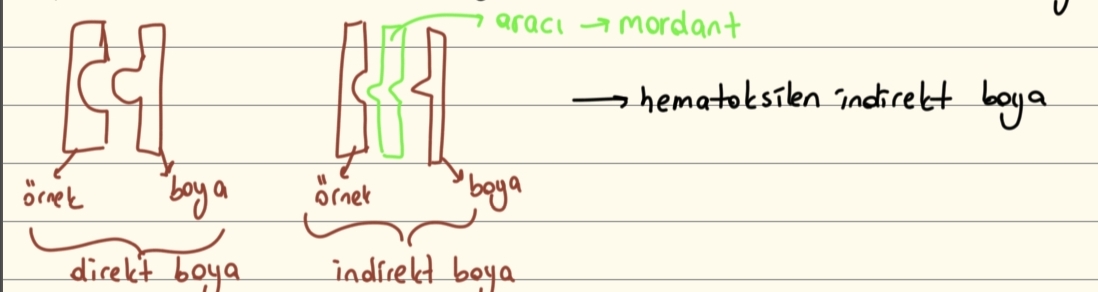 aracı → mordant
→ hematoksilen indirekt boya
örnek boya
örnek boya
direkt boya
indirekt boya